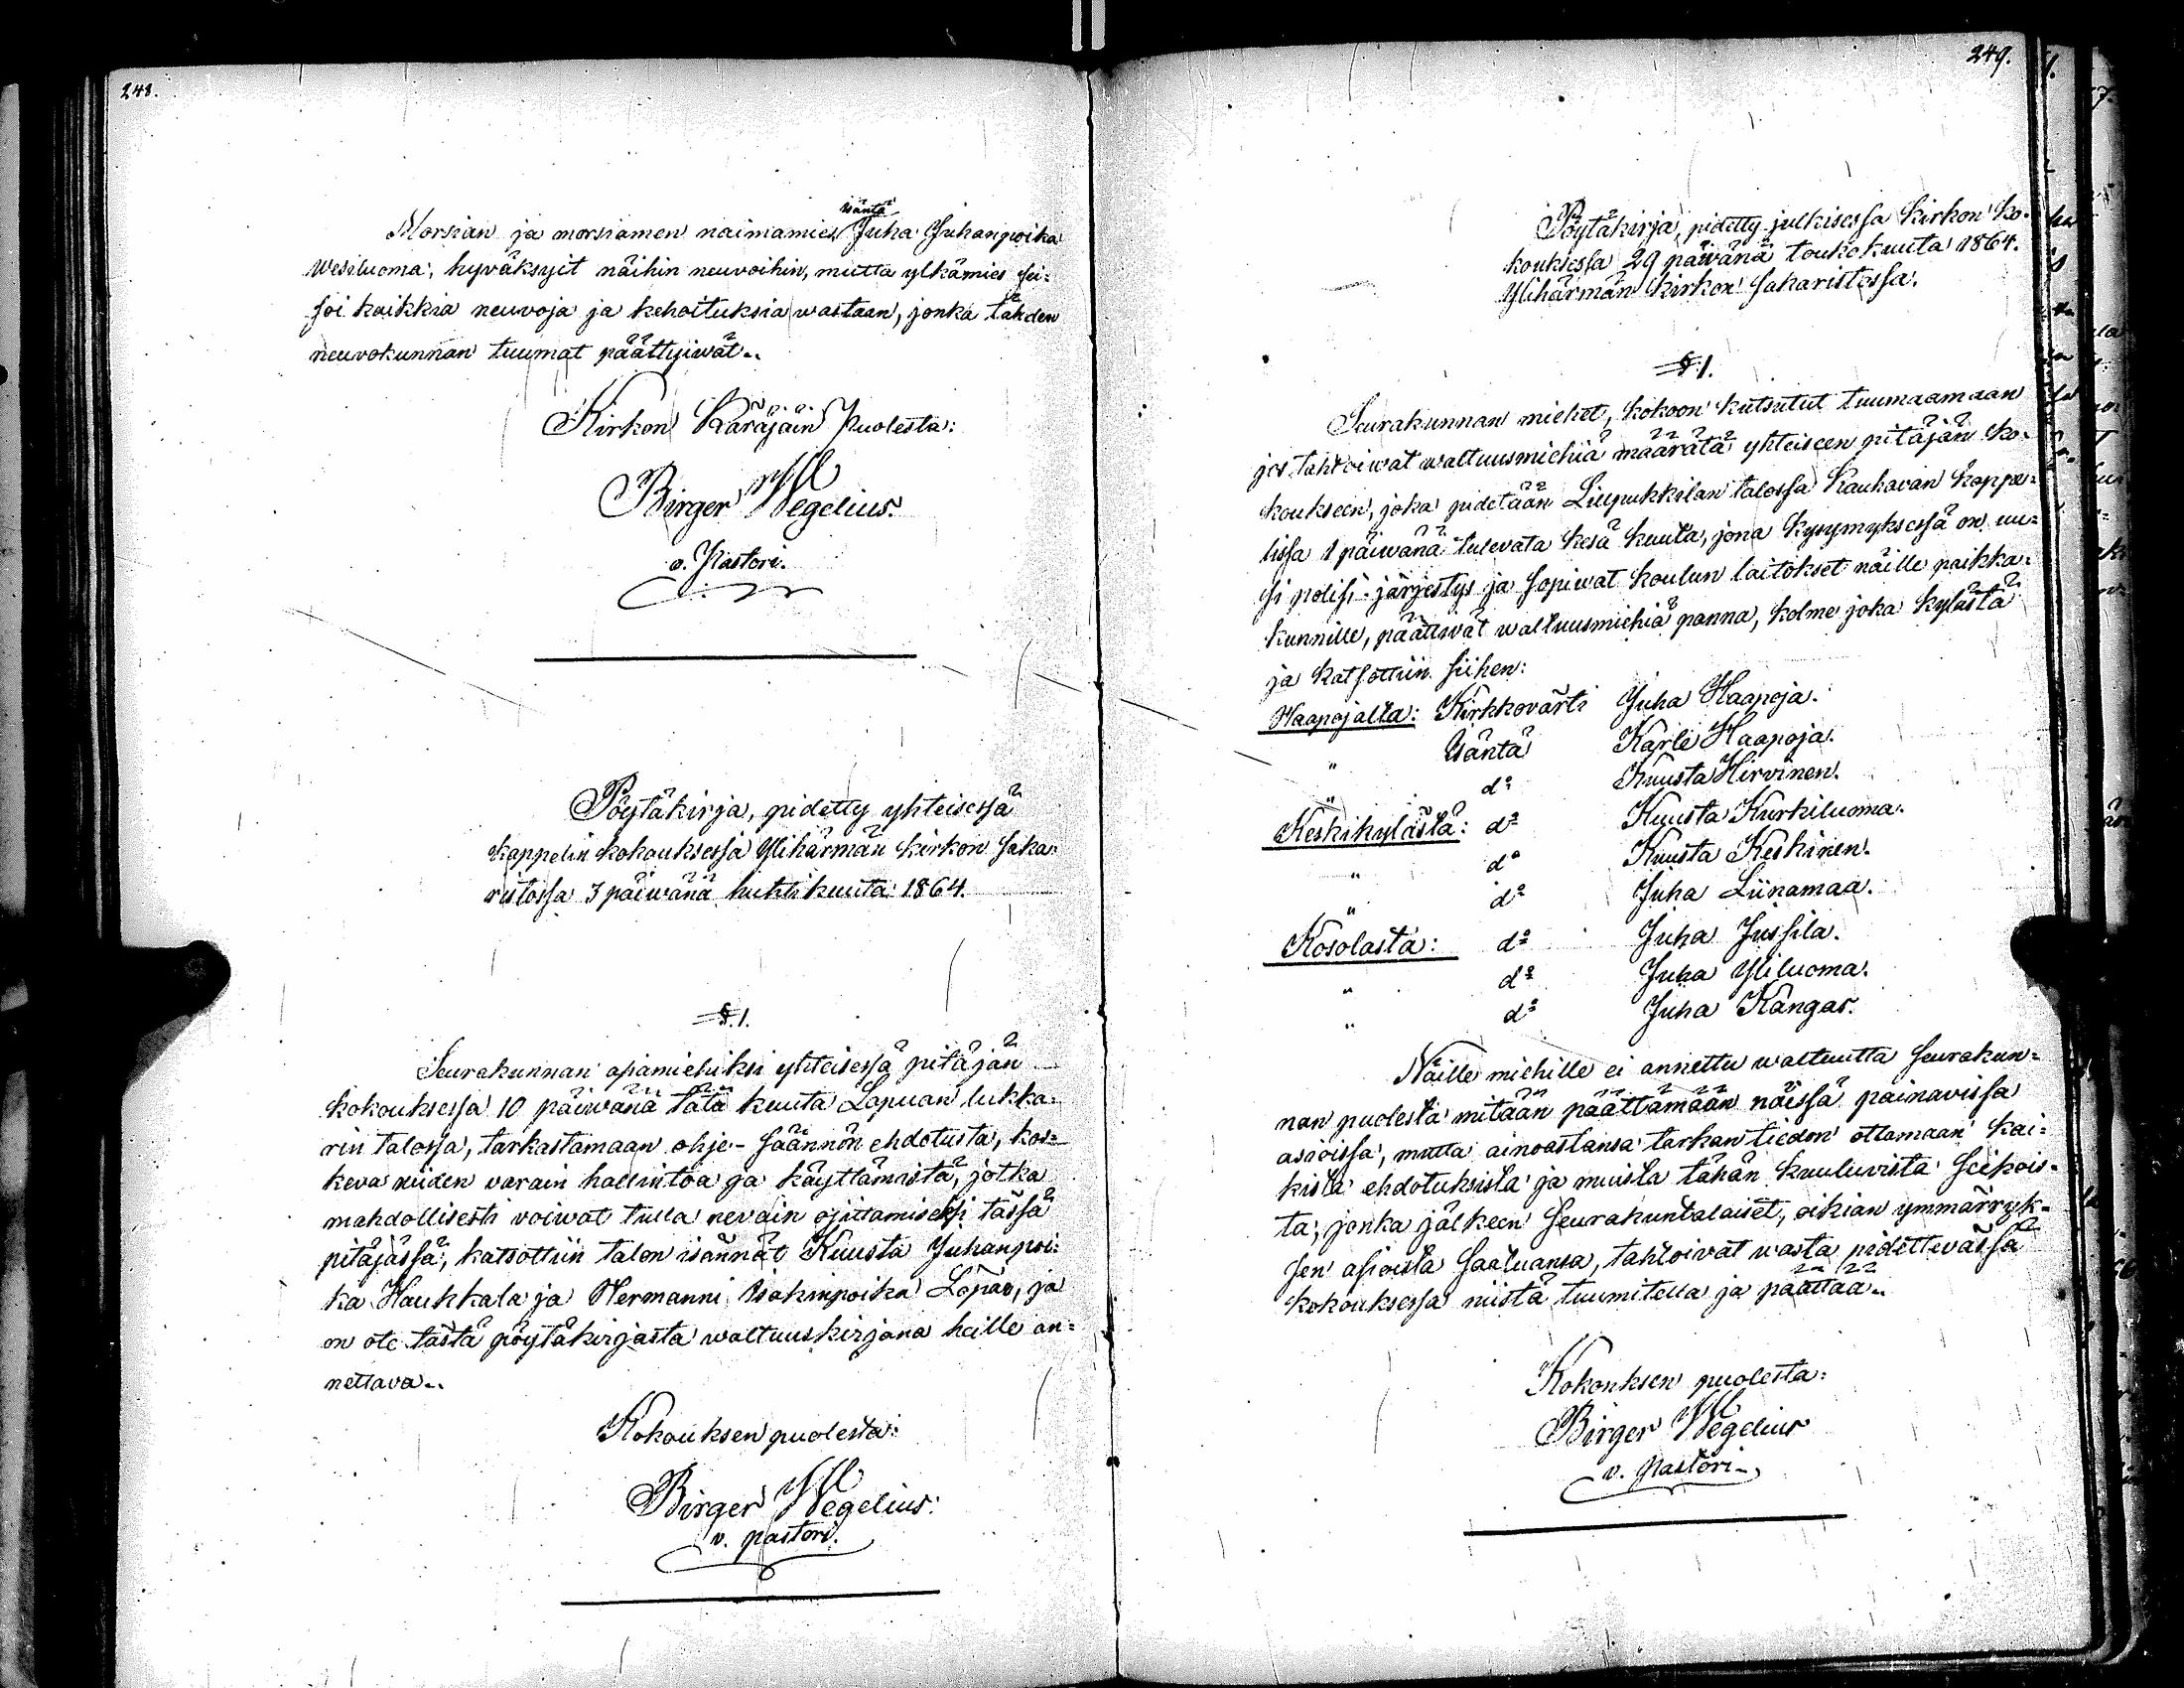 248.
Isäntä
Morsian ja morsiamen naimamies, Juha Juhanpoika
Wesiluoma, hyväksyit näihin neuvoihin, mutta ylkämies sei-
soi kaikkia neuvoja ja kehoituksia wastaan, jonka tähden
neuvokunnan tuumat päättyiwät..
Kirkon Käräjäin puolesta:
Birger Wegelius.
v. Pastori.
Pöytäkirja, pidetty yhteisessä
kappelin kokouksessa Ylihärmän kirkon saka-
ristossa 3 päiwänä huhtikuuta 1864.
§. 1.
Seurakunnan asiamiehiksi yhteisessä pitäjän
kokouksessa 10 päiwänä tätä kuuta Lapuan lukka-
rin talossa, tarkastamaan ohje-säännön ehdotusta, kos-
keva niiden varain hallintoa ja käyttämistä, jotka
mahdollisesti voiwat tulla nevain ojittamiseksi tässä
pitäjässä, katsottiin talon isännät Kuusta Juhanpoi-
ka Haukkala ja Hermanni Isakinpoika Lapas, ja
on ote tästä pöytäkirjasta waltuuskirjana heille an-
nettava..
Kokouksen puolesta:
Birger Wegelius.
v. pastori.
249.
Pöytäkirja, pidetty julkisessa Kirkon ko-
kouksessa 29 päiwänä toukokuuta 1864.
Ylihärmän kirkon sakaristossa.
§. 1.
Seurakunnan miehet, kokoon kutsutut tuumaamaan
jos tahtoiwat waltuusmiehiä määrätä yhteiseen pitäjän ko-
koukseen, joka pidetään Liupukkilan talossa Kauhavan kappe-
lissa 1 päiwänä tulevata kesä kuuta, jona kysymyksessä on uu-
si polisi-järjestys ja sopiwat koulun laitokset näille paikka-
kunnille, päättivät waltuusmiehiä panna, kolme joka kylästä
ja katsottiin siihen:
Haapojalta: Kirkkovärti Juha Haapoja.
" Isäntä Karle Haapoja.
" d:o Kuusta Hirvinen.
Keskikylästä: d:o Kuusta Kurkiluoma.
" d:o Kuusta Keskinen.
" d:o Juha Liinamaa.
Kosolasta: d:o Juha Jussila.
" d:o Juha Yliluoma.
" d:o Juha Kangas.
Näille miehille ei annettu waltuutta seurakun-
nan puolesta mitään päättämään näissä painavissa
asioissa, mutta ainoastansa tarkan tiedon ottamaan kai-
kista ehdotuksista ja muista tähän kuuluvista seikois-
ta, jonka jälkeen seurakuntalaiset, oikian ymmärryk-
sen asioista saatuansa, tahtoivat wasta pidettewässä
kokouksessa niistä tuumitella ja päättää..
Kokouksen puolesta:
Birger Wegelius
v. Pastori.